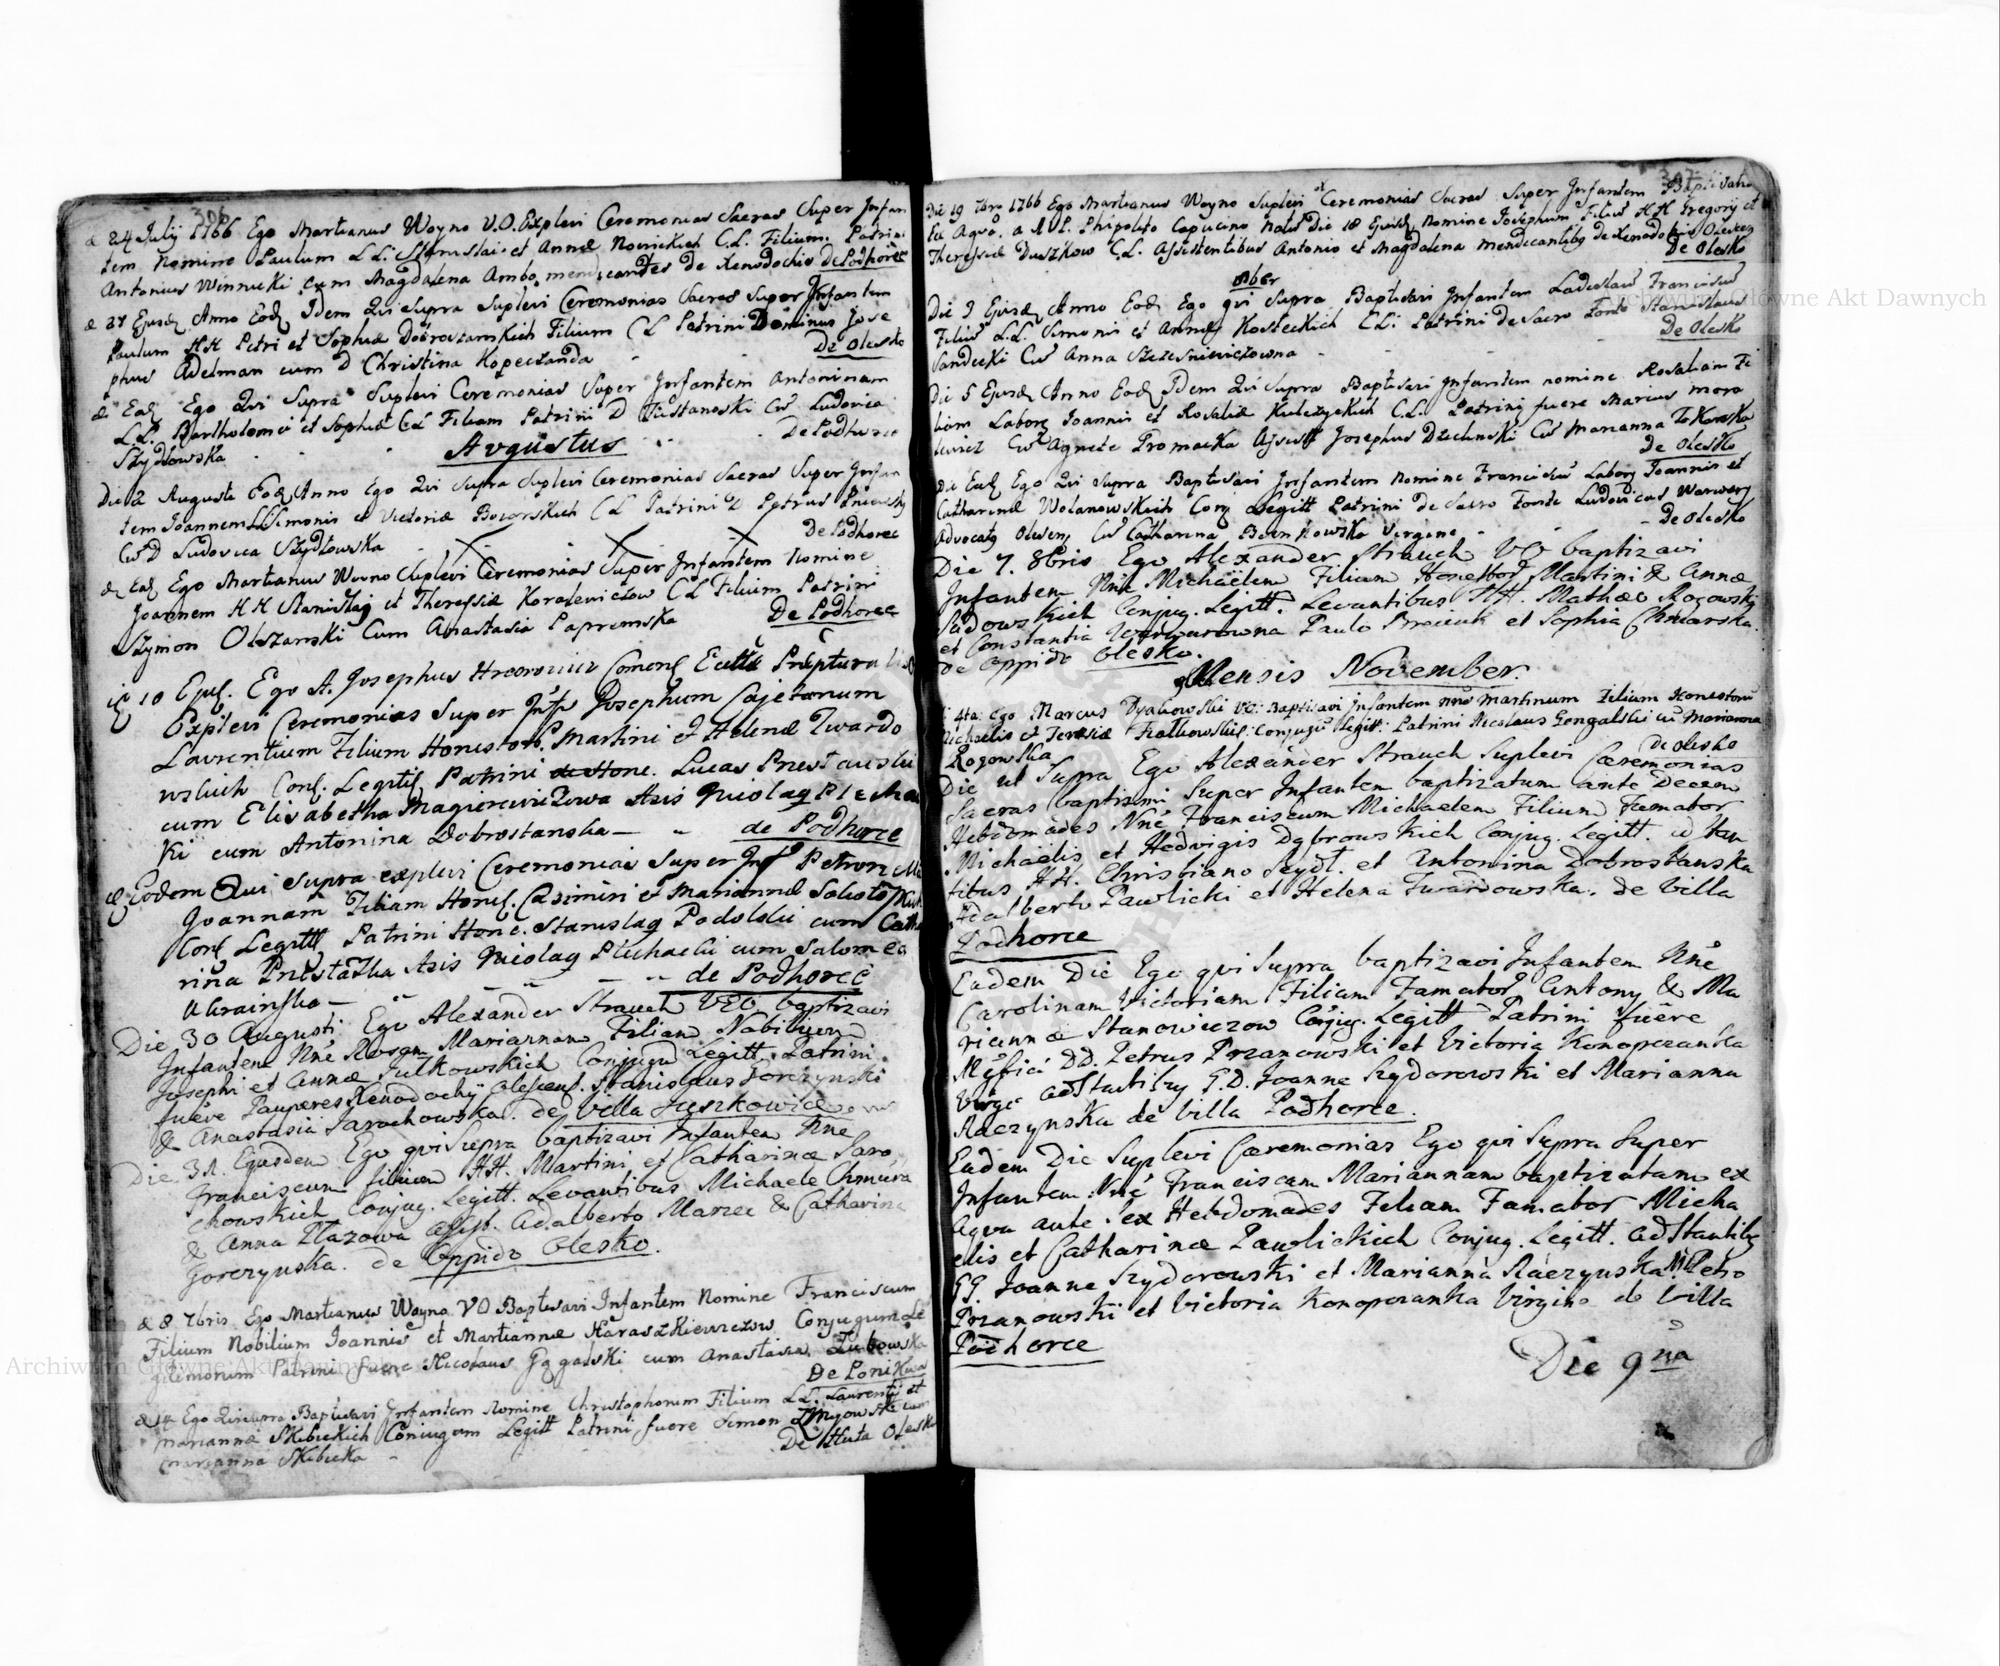 306
24 Julij 1766 Ego Martianus Woyno V.O. Explevi Ceremonias Sacras Super Infan
tem Nomine Paulum LL. Stanislai et Annæ Novickich C.L. Filium. Patrini
Antonius Winnicki cum Magdalena Ambo mendicantes de Xenodochio De Podhorce
27 Ejusd Anno Eod Idem Qui Supra Suplevi Ceremonias Sacras Super Infantem
Paulum HH Petri et Sophiæ Dobroszanskich Filium CL Patrini Dominus Jose
phus Adelman cum D Christina Kopeczanda
De Olesko
Ead Ego Qui Supra Suplevi Ceremonias Super Infantem Antoninam
LL. Bartholomei et Sophiæ CL Filiam Patrini D Tustanoski Cu Ludovica
Szydłowska
De Podhorce
Avgustus
Die 2 Augusti Eod Anno Ego Qui Supra Suplevi Ceremonias Sacras Super Infan
tem Joannem LL Simonis et Victoriæ Bororskich CL Patrini D Petrus
Cu D Ludovica Szydłowska
De Podhorce
Ead Ego Martianus Woyno Suplevi Ceremonias Super Infantem Nomine
Joannem HH Stanislaj et Theressiæ Korolewiczow CL Filium Patrini
Szymon Olszanski Cum Anastasia Papremska
De Podhorce
10 Ejusd. Ego A. Josephus Comend Ecclæ
Explevi Ceremonias Super Infte Josephum Cajetanum
Laurentium Filium Honestor. Martini et Helenæ Twardo
wskich Conj. Legitt. Patrini de Hone. Lucas Prestauski
cum Elisabetha Magierowiczowa Asis Nicolaq Plecha
ki cum Antonina Dobrostanska
de Podhorce
Eodem Qui supra explevi Ceremonias Super Inf
Joannam Filiam Honest. Casimiri et Mariannæ
Conj Legitt Patrini Hone. Stanislaq Podolski cum Catha
rina Asis Nicolaq Plichaclii cum Salomea
Ukrainska
de Podhorce
Die 30 Augusti Ego Alexander Strauch VEO baptizavi
Infantem Nne Rosam Mariannam Filiam Nobilium
Josephi et Annæ Sulkowskich Conjugum Legitt. Patrini
fuêre Pauperes Xenodochij Olescens. Stanislaus Gorczynski
& Anastasia Sarachowska. de Villa Juszkowice
Die 31. Ejusdem Ego qui Supra baptizavi Infantem Nne
Franciscum filium HH. Martini et Catharinæ Saro
chowskich Conjug. Legitt. Levantibus Michaele Chmura
& Anna Płazowa assist. Adalberto Marzec & Catharina
Gorczynska. de Oppido Olesko.
8 7bris Ego Martianus Woyno VO Baptisavi Infantem Nomine Franciscum
Filium Nobilium Joannis et Martiannæ Haraszkiewiczow Conjugum Le
gitimorum Patrini Fuere Nicolaus Gągalski cum Anastasia Zubowska
De Ponikwa
14 Ego Qui supra Baptisavi Infantem Nomine Christophorum Filium LL. Laurentij et
Mariannæ Skibickich Coniugum Legitt Patrini fuere Simon Zmijowski cum
Marianna Skibicka
De Huta Olesko
307
Die 19 7bris 1766 Ego Martianus Woyno Suplevi Ceremonias Sacras Super Infantem Baptisatum
Ex Aqva. a A.V.P. Hipolito Capucino Natus Die 18 Ejusd Nomine Josephum Filius HH Gregorij et
Theressiæ Duszkow C.L. Assistentibus Antonio et Magdalena Mendicantibq de Xenodochio Olescen
De Olesko
8ber
Die 3 Ejusd Anno Eod Ego qui Supra Baptisavi Infantem Ladeslaus Franciscus
Filius LL. Simonis et Annæ Kosteckich C.L. Patrini de Sacro Fonte Stanislaus
Sandecki Cu Anna Szczesniewiczowna
De Olesko
Die 5 Ejusd Anno Eod Idem Qui Supra Baptisavi Infantem nomine Rosaliam Fi
liam Labor Joannis et Rosaliæ Kulczyckich C.L. Patrinj fuere Marius moro
Cu Agnete Promacka Assist Josephus Dzielinski Cu Marianna Tokarska
De Olesko
Die Ead Ego Qui Supra Baptisavi Infantem Nomine Franciscus Labor Joannis et
Catharinæ Wolanowskich Conj Legitt Patrini de Sacro Fonte Ludovicus Warwarz
Advocatq Olescen Cu Catharina Bankowska Virgine
De Olesko
Die 7. 8bris Ego Alexander Strauch VO baptizavi
Infantem Nne Michaëlem Filium Honestor Martini & Annæ
Sadowskich Conjug. Legitt. Levantibus HH. Mathæo Rogowski
et Constantia Warwarowna Paulo et Sophia Chmarska.
de Oppido Olesko.
Mensis November.
4ta Ego Marcus Dyakowski VO: Baptisavi Infantem nne Martinum Filium Honestoru
Michaelis et Teresiæ Fialkowskie: Conjugu Legit: Patrini Nicolaus Gongalski cu Marianna
Rogowska
de Olesko
Die ut Supra Ego Alexander Strauch Suplevi Cæremonias
Sacras baptismi Super Infantem baptizatum ante Decem
Hebdomades Nne Franciscum Michaelem Filium Famator
Michaëlis et Hedvigis Dąbrowskich Conjug. Legitt. adstan
tibus HH. Christiano Seydl. et Antonina Dobrostanska
Adalberto Pawlicki et Helena Twardowska. de Villa
Podhorce
Eadem Die Ego qui Supra baptizavi Infantem Nne
Carolinam Victoriam Filiam Famator Antony & Ma
riannæ Stanowiczow Conjug. Legitt Patrini fuêre
Mgfici DD. Petrus Przanowski et Victoria Konopczanka
Virgo adstantibq G.D. Joanne Szydorowski et Marianna
Raczynska de Villa Podhorce.
Eadem Die Suplevi Cæremonias Ego qui Supra Super
Infantem Nne Franciscam Mariannam baptizatam ex
aqva ante sex Hebdomades Filiam Famator Micha
elis et Catharinæ Pawlickich Conjug. Legitt. adstantibq
GG. Joanne Szydorowski et Marianna Raczynska M. Petro
Przanowski et Victoria Konopczanka Virgine de Villa
Podhorce
Die 9na
Archiwum Główne Akt Dawnych
Archiwum Główne Akt Dawnych